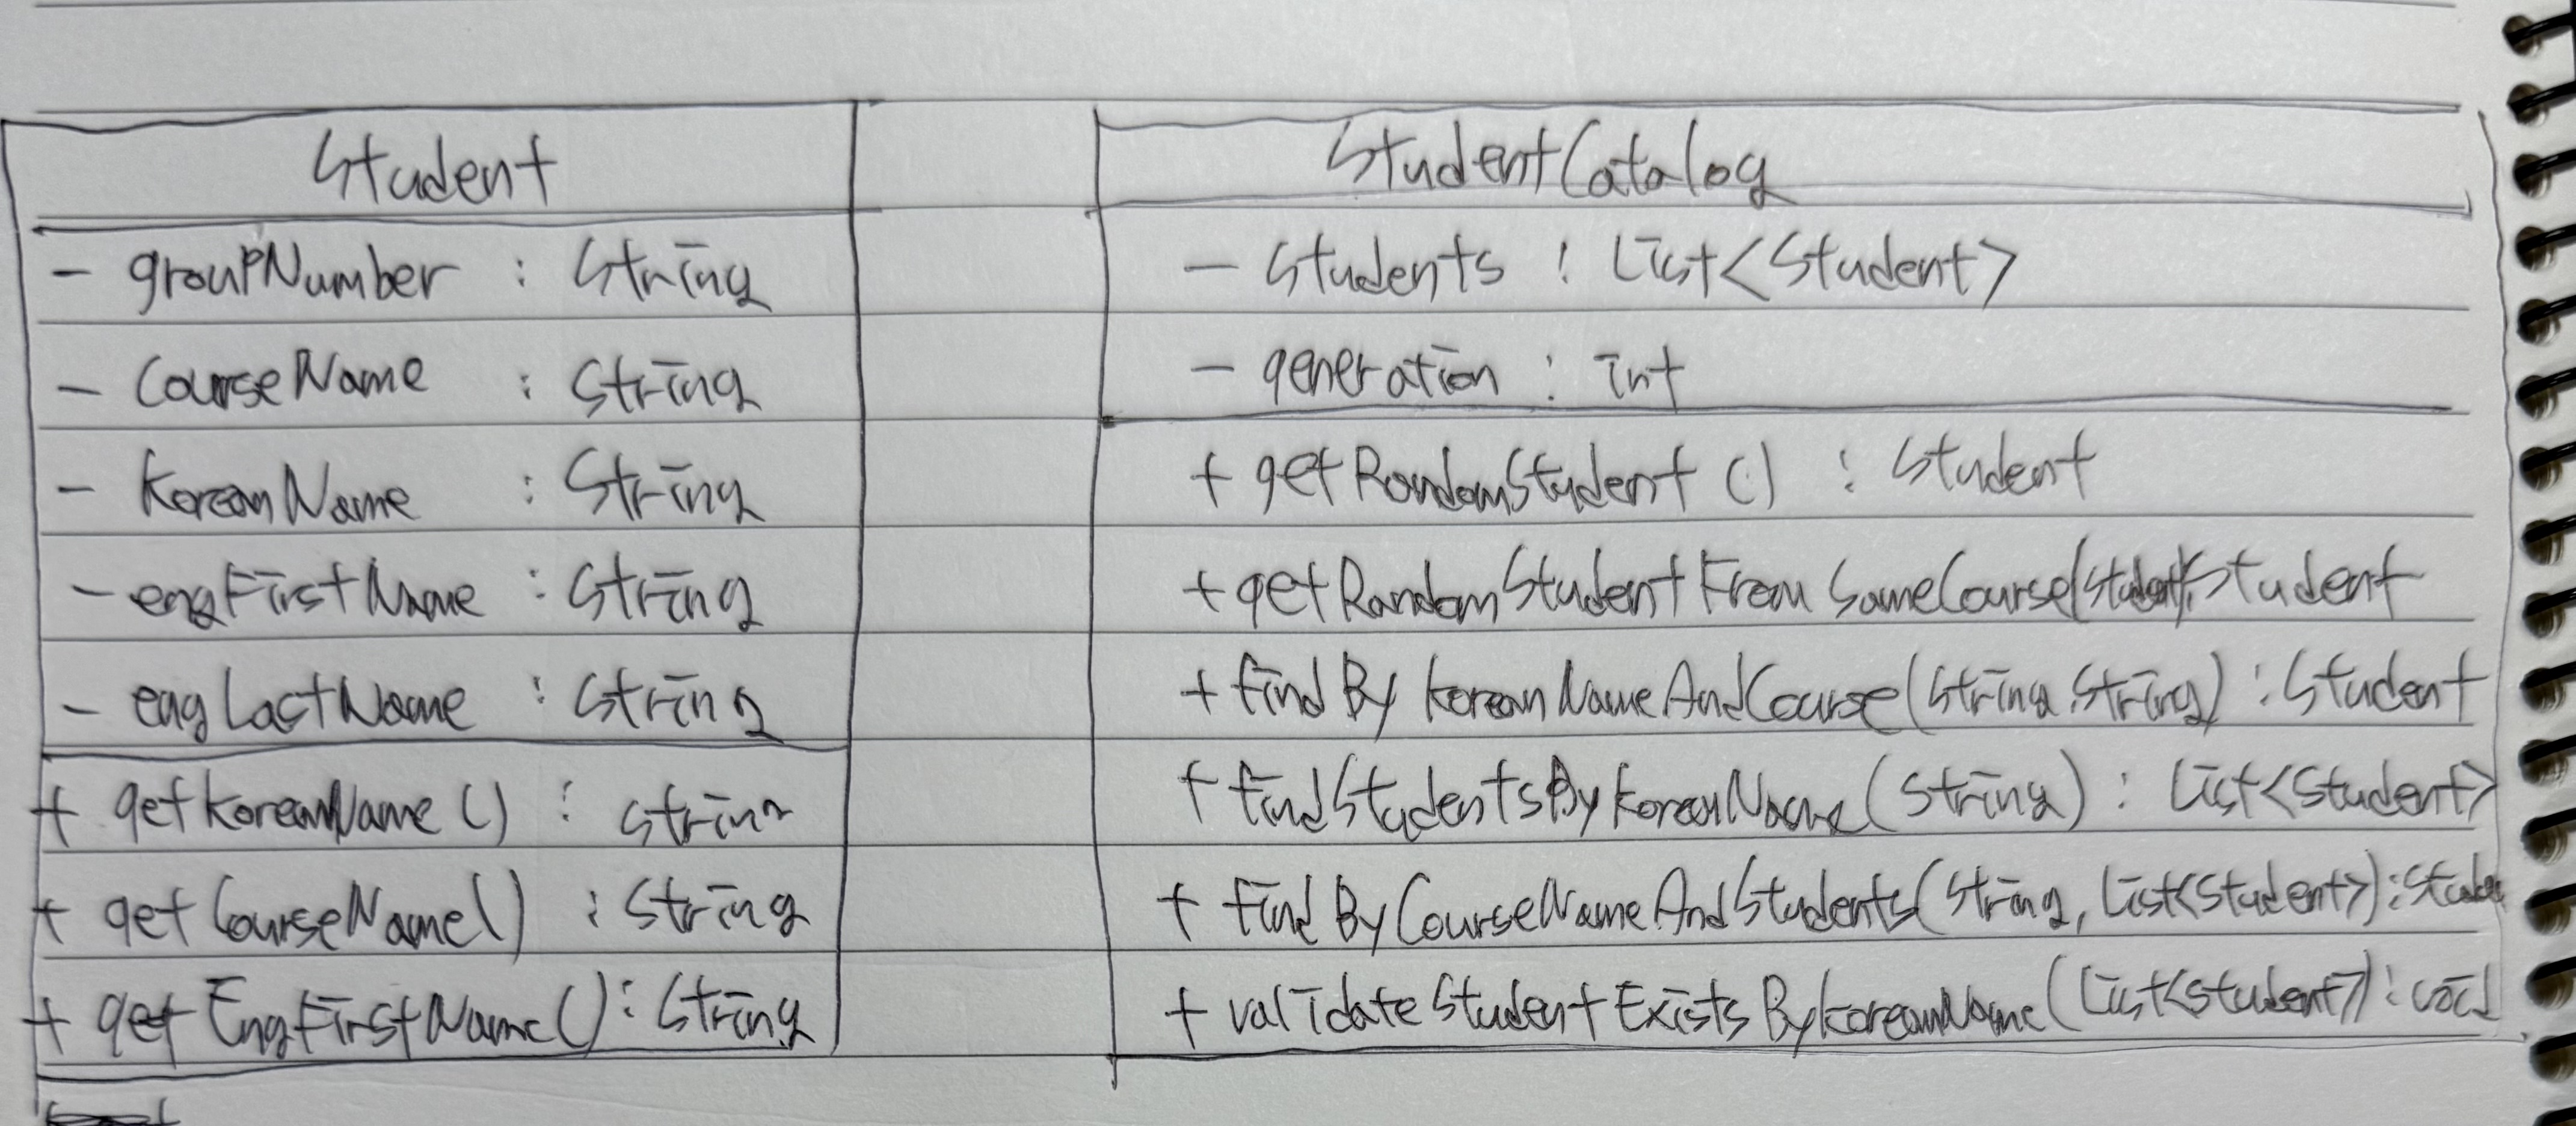 Student
- groupNumber : String
- CourseName : String
- KoreanName : String
- engFirstName : String
- engLastName : String
+ getKoreanName () : String
+ getCourseName() : String
+ getEngFirstName() : String
StudentCatalog
- Students : List<Student>
- generation : int
+ getRandomStudent () : Student
+ getRandomStudentFromSameCourse(Student):Student
+ findByKoreanNameAndCourse(String,String) : Student
+ findStudentsByKoreanName(String) : List<Student>
+ findByCourseNameAndStudents(String, List<Student>):Student
+ validateStudentExistsByKoreanName(List<Student>):void